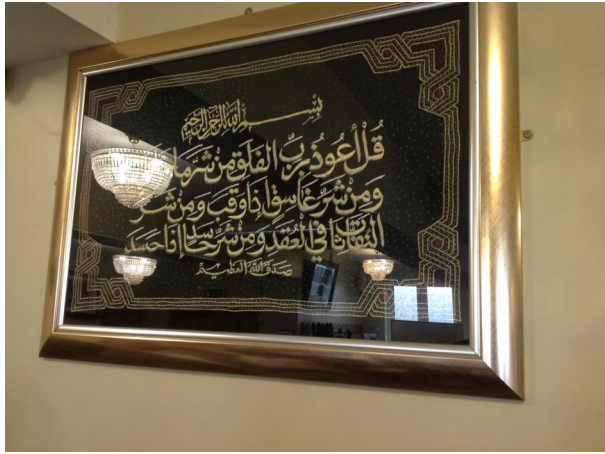 بِسْمِ اللهِ الرَّحْمٰنِ الرَّحِيْمِ
قُلْ أَعُوذُ بِرَبِّ الفَلَقِ مِنْ شَرِّ مَا
وَمِنْ شَرِّ غَاسِقٍ إِذَا وَقَبَ وَمِنْ شَرِّ
النَّفَّاثَاتِ فِي الْعُقَدِ وَمِنْ شَرِّ حَاسِدٍ إِذَا حَسَدَ
صَدَقَ اللهُ العَظِيمُ